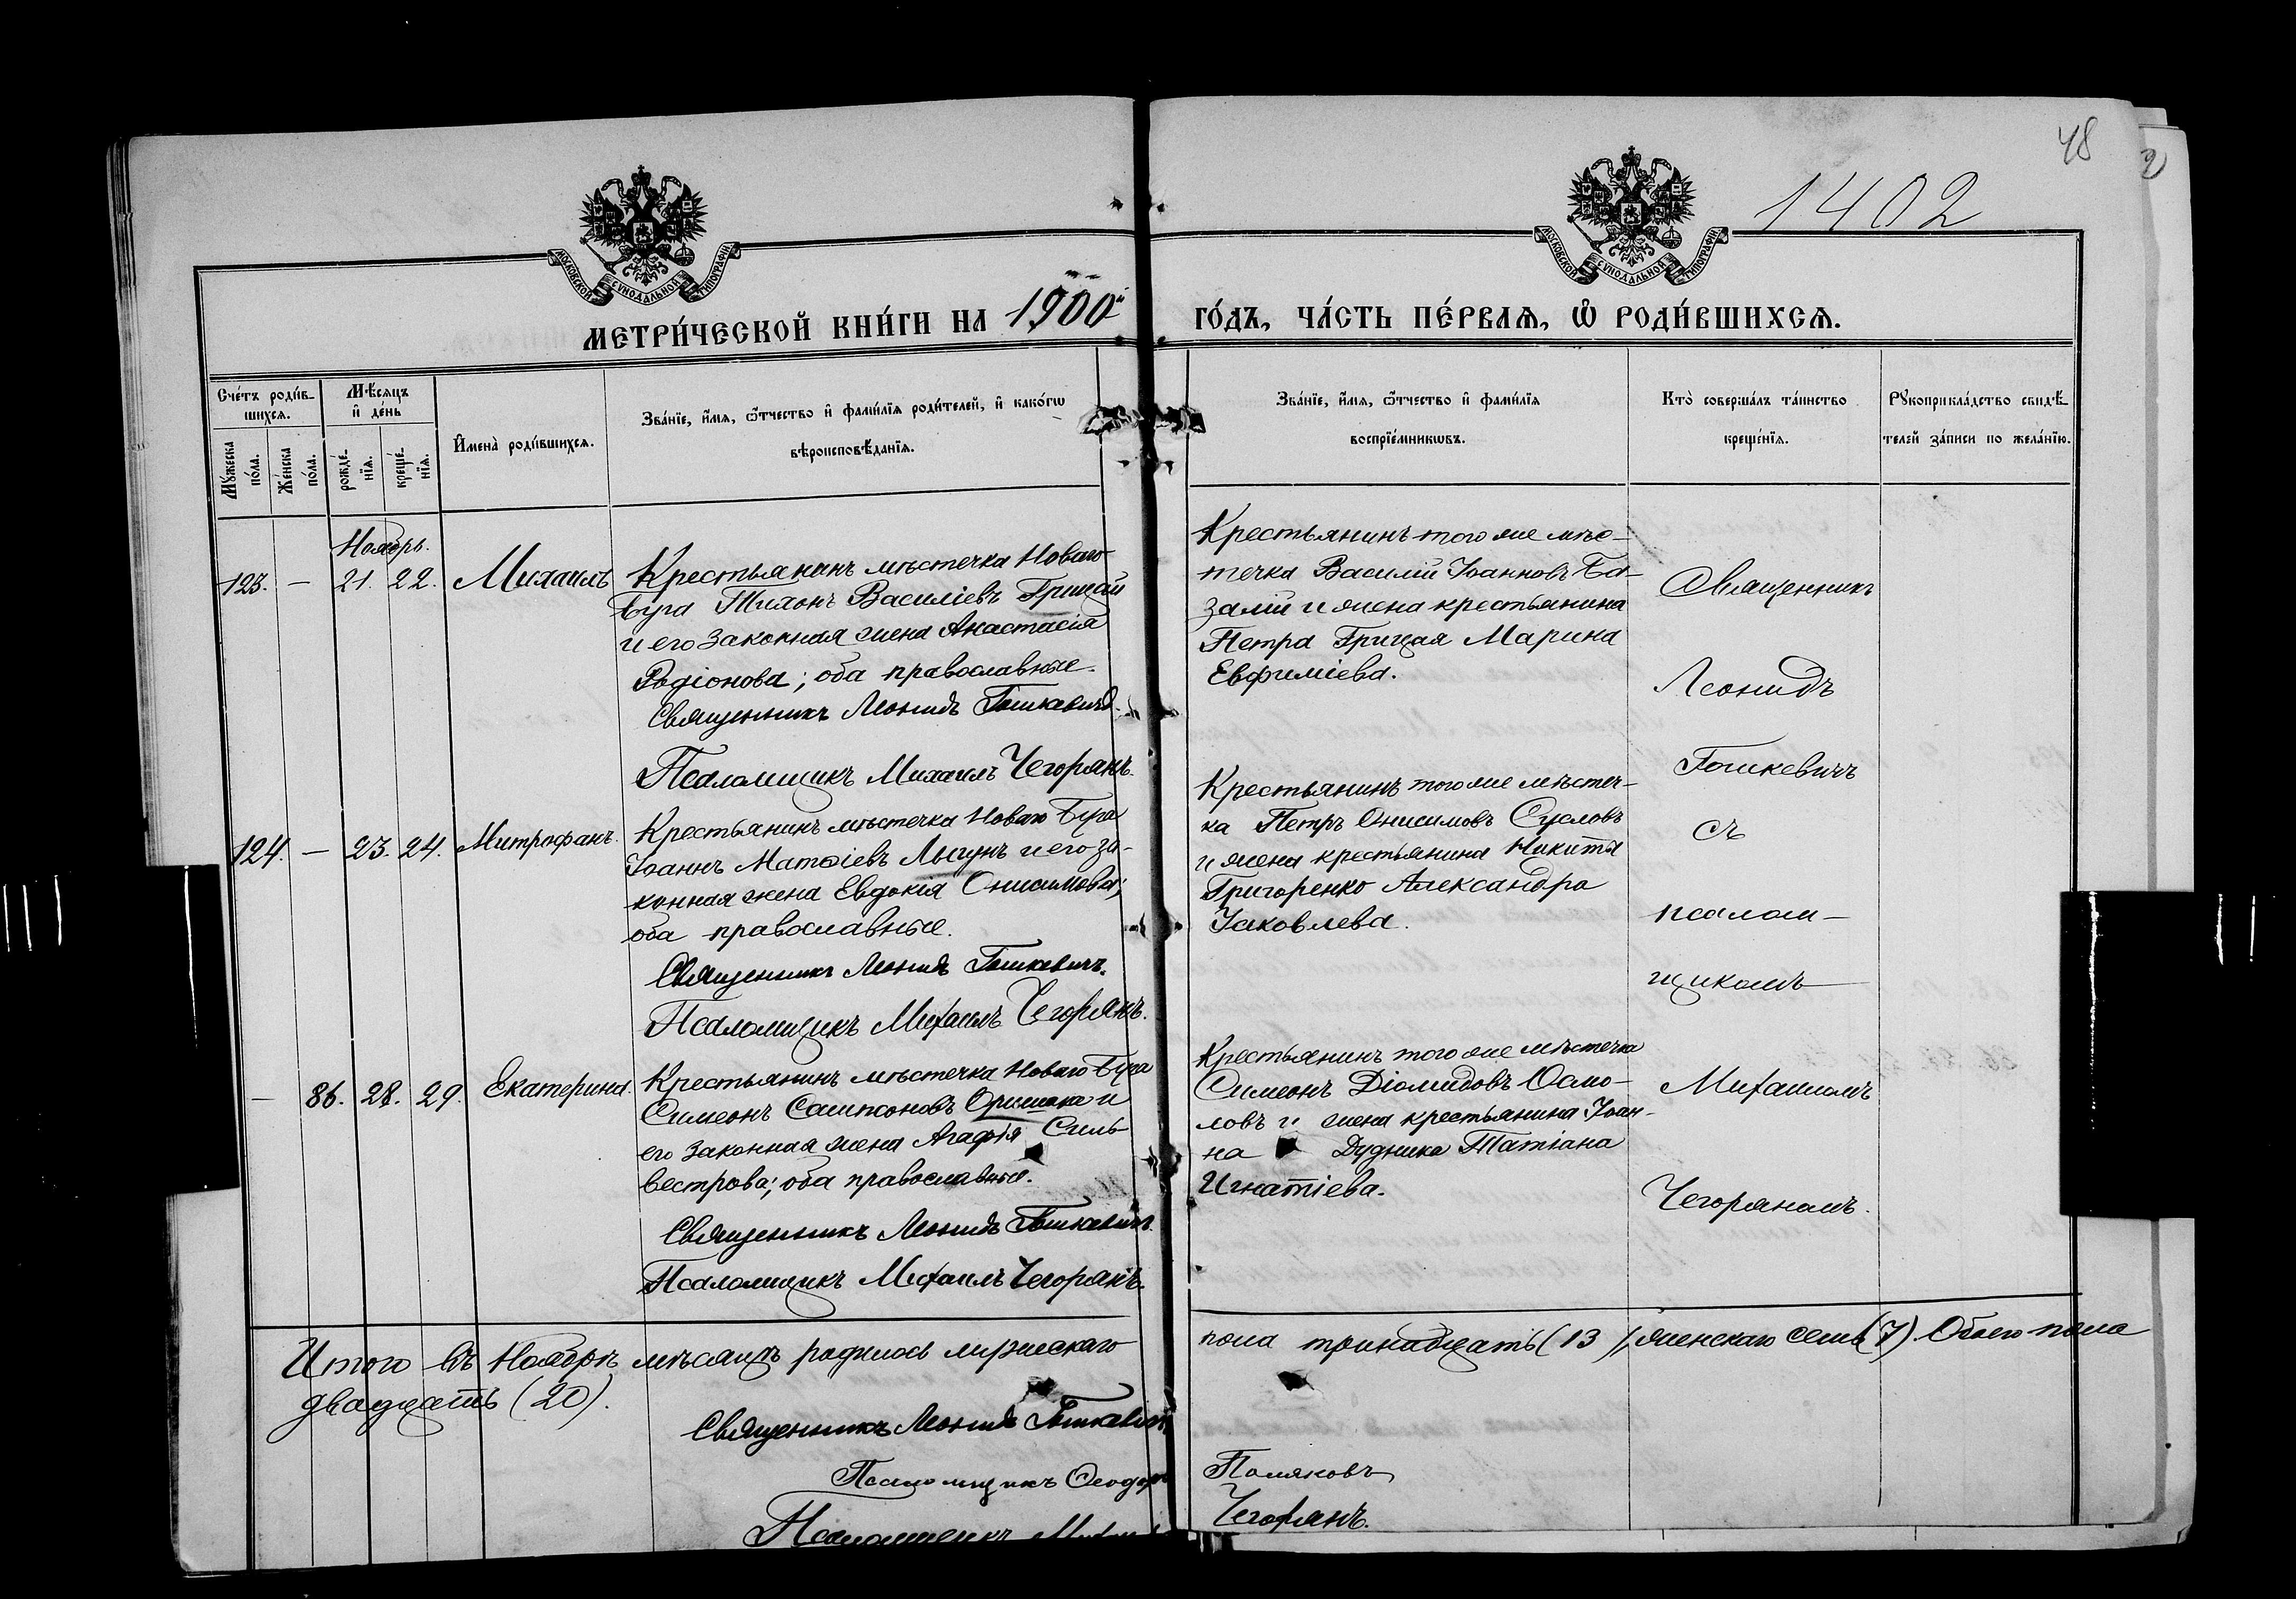 48
1402
МОСКОВСКОЙ СѴНОДАЛЬНОЙ ТИПОГРАФІИ
МОСКОВСКОЙ СѴНОДАЛЬНОЙ ТИПОГРАФІИ
МЕТРИ́ЧЕСКОЙ КНИ́ГИ НА 1900й ГО́ДЪ, ЧА́СТЬ ПЕ́РВАѦ, Ѡ҆ РОДИ́ВШИХСѦ.
Сче́тъ роди́в-
шихсѧ.
Мѣ́сѧцъ
и҆ де́нь
Мꙋ́жеска
по́ла.
Же́нска
по́ла.
рожде́-
нїѧ.
креще́-
нїѧ.
И҆мена̀ роди́вшихсѧ.
Зва́нїе, и҆́мѧ, ѻ҆́тчество и҆ фами́лїѧ роди́телей, и҆ како́гѡ
вѣроисповѣ́данїѧ.
Зва́нїе, и҆́мѧ, ѻ҆́тчество и҆ фами́лїѧ
воспрїе́мникѡвъ.
Кто̀ соверша́лъ та́инство
креще́нїѧ.
Рꙋкоприкла́дство свидѣ́-
телей за́писи по жела́нїю.
Ноябрь.
123. — 21. 22. Михаилъ
Крестьянинъ мѣстечка Новаго
Буга Тихонъ Василіевъ Грицай
и его законная жена Анастасія
Родіонова; оба православные.
Священникъ Леонидъ Гошкевичъ.
Псаломщикъ Михаилъ Чегорянъ.
Крестьянинъ того же мѣс-
течка Василій Іоанновъ Ба-
залій и жена крестьянина
Петра Грицая Марина
Евфиміева.
124. — 23. 24. Митрофанъ.
Крестьянинъ мѣстечка Новаго Буга
Іоаннъ Матѳіевъ Лысунъ и его за-
конная жена Евдокія Онисимова;
оба православные.
Священникъ Леонидъ Гошкевичъ.
Псаломщикъ Михаилъ Чегорянъ.
Крестьянинъ того же мѣстеч-
ка Петръ Онисимовъ Сусловъ
и жена крестьянина Никиты
Григоренко Александра
Іаковлева.
— 86. 28. 29. Екатерина.
Крестьянинъ мѣстечка Новаго Буга
Симеонъ Сампсоновъ и
его законная жена Агафія Силь-
вестрова; оба православные.
Священникъ Леонидъ Гошкевичъ.
Псаломщикъ Михаилъ Чегорянъ.
Крестьянинъ того же мѣстечка
Симеонъ Діомидовъ Осмо-
ловъ и жена крестьянина Іоан-
на Дудника Татіана
Игнатіева.
Священникъ
Леонидъ
Гошкевичъ
съ
псалом-
щикомъ
Михаиломъ
Чегоряномъ.
Итого въ Ноябрѣ мѣсяцѣ родилось мужескаго пола тринадцать (13), женскаго семь (7). Обоего пола
двадцать (20).
Священникъ Леонидъ Гошкевичъ
Псаломщикъ Ѳеодоръ Поляковъ
Псаломщикъ Михаилъ Чегорянъ.